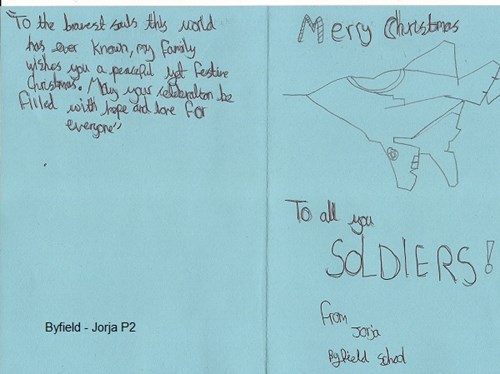 "To the bravest souls this world
has ever known, my family
wishes you a peaceful yet festive
Christmas. May your celebration be
filled with hope and love for
everyone"
Byfield - Jorja P2
Merry Christmas
To all you
SOLDIERS!
From
Jorja
Byfield School